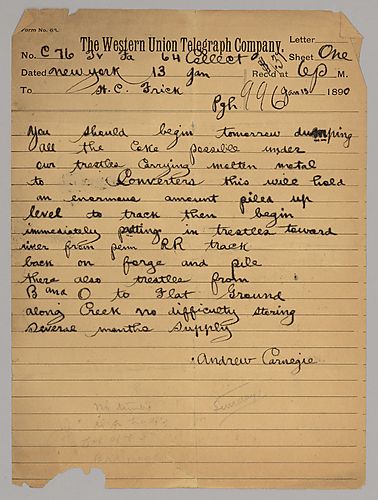 Form No. 64.
The Western Union Telegraph Company.
Letter
No. C 76 Fv Fa 64 Collect
Sheet One
Dated new york 13 Jan Rec'd at 6p M.
To H. C. Frick
Pgh 996 Jan 13 1890
You should begin tomorrow dumping
all the Coke possible under
our trestles Carrying melten metal
to Converters this will hold
an enormous amount piled up
level to track then begin
immediately putting in trestles toward
river from penn RR track
back on forge and pile
there also trestles from
B and O to Flat Ground
along Creek no difficulty storing
several months supply
Andrew Carnegie
Sunday